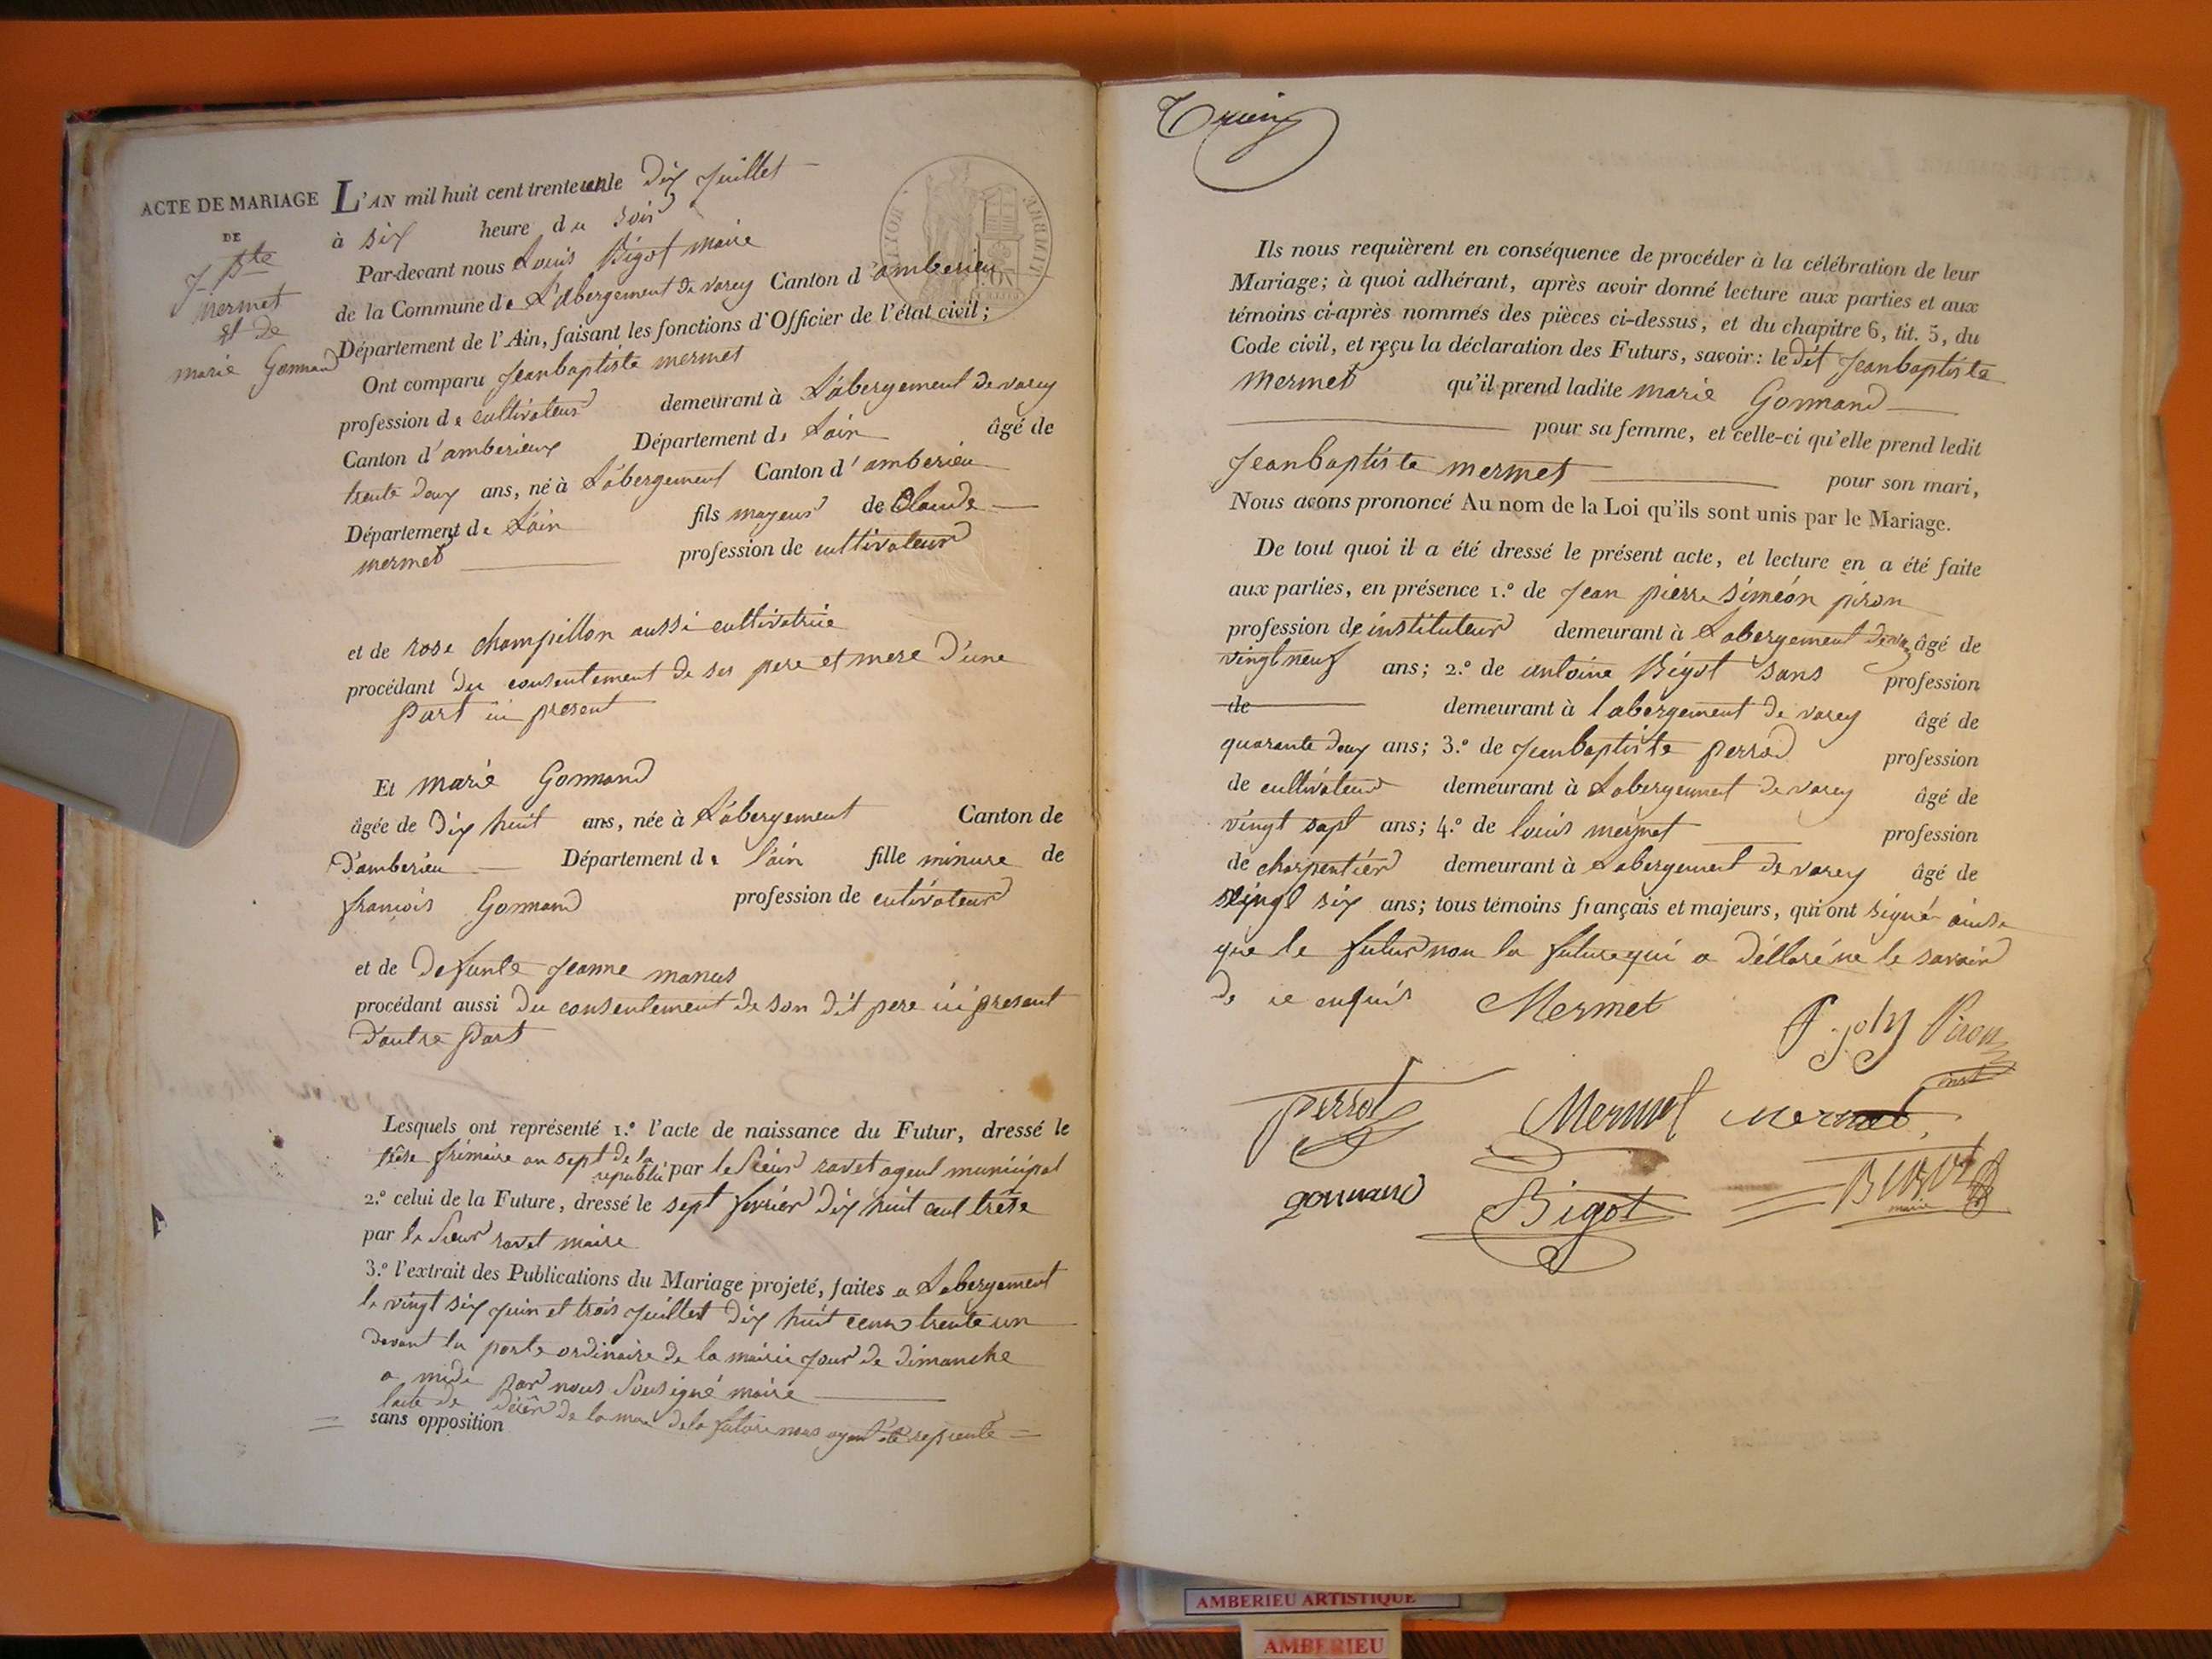 ACTE DE MARIAGE
DE
J Bte
mermet
et de
marie Gonnand
L'AN mil huit cent trente un le Dix Juillet
à six heure du soir
Par-devant nous Louis Bigot maire
de la Commune de L'abergement de varey Canton d'amberieu
Département de l'Ain, faisant les fonctions d'Officier de l'état civil;
Ont comparu Jeanbaptiste mermet
profession de cultivateur demeurant à L'abergement de varey
Canton d'amberieux Département de L'ain âgé de
trente deux ans, né à L'abergement Canton d'amberieu
Département de L'ain fils mageur de Claude
mermet profession de cultivateur
et de rose champillon aussi cultivatrice
procédant du consentement de ses pere et mere D'une
part ici present
Et marie Gonnand
âgée de Dix huit ans, née à L'abergement Canton de
D'amberieu Département de l'ain fille minure de
françois Gonnand profession de cultivateur
et de Defunte Jeanne manus
procédant aussi Du consentement de son dit pere ici present
D'autre part
Lesquels ont représenté 1.º l'acte de naissance du Futur, dressé le
trêse frimaire an sept de la republi par le Sieur ravet agent municipal
2.º celui de la Future, dressé le sept fevrier Dix huit cent trêse
par le Sieur ravet maire
3.º l'extrait des Publications du Mariage projeté, faites a Labergement
le vingt six juin et trois Juillet Dix huit cent trente un
Devant la porte ordinaire de la mairie jour de dimanche
a midi par nous Sousigné maire
lacte de Décèr de la mere dela future nous ayant été represente
sans opposition
Ils nous requièrent en conséquence de procéder à la célébration de leur
Mariage; à quoi adhérant, après avoir donné lecture aux parties et aux
témoins ci-après nommés des pièces ci-dessus, et du chapitre 6, tit. 5, du
Code civil, et reçu la déclaration des Futurs, savoir: le dit Jeanbaptiste
Mermet qu'il prend ladite marie Gonnand
pour sa femme, et celle-ci qu'elle prend ledit
Jeanbaptiste mermet pour son mari,
Nous avons prononcé Au nom de la Loi qu'ils sont unis par le Mariage.
De tout quoi il a été dressé le présent acte, et lecture en a été faite
aux parties, en présence 1.º de Jean pierre siméon piron
profession de instituteur demeurant à Labergement de âgé de
vingt neuf ans; 2.º de antoine Bigot sans profession
de demeurant à l'abergement de varey âgé de
quarante deux ans; 3.º de Jeanbaptiste perrod profession
de cultivateur demeurant à Labergement de varey âgé de
vingt sept ans; 4.º de louis mermet profession
de charpentier demeurant à Labergement de varey âgé de
vingt six ans; tous témoins français et majeurs, qui ont signé ainsi
que le futur non la future qui a déllaré ne le savoir
de ce enquis Mermet
Piron
inst
perrod Mermet mermet
gonnand Bigot Bigot
maire
AMBERIEU ARTISTIQUE
AMBERIEU